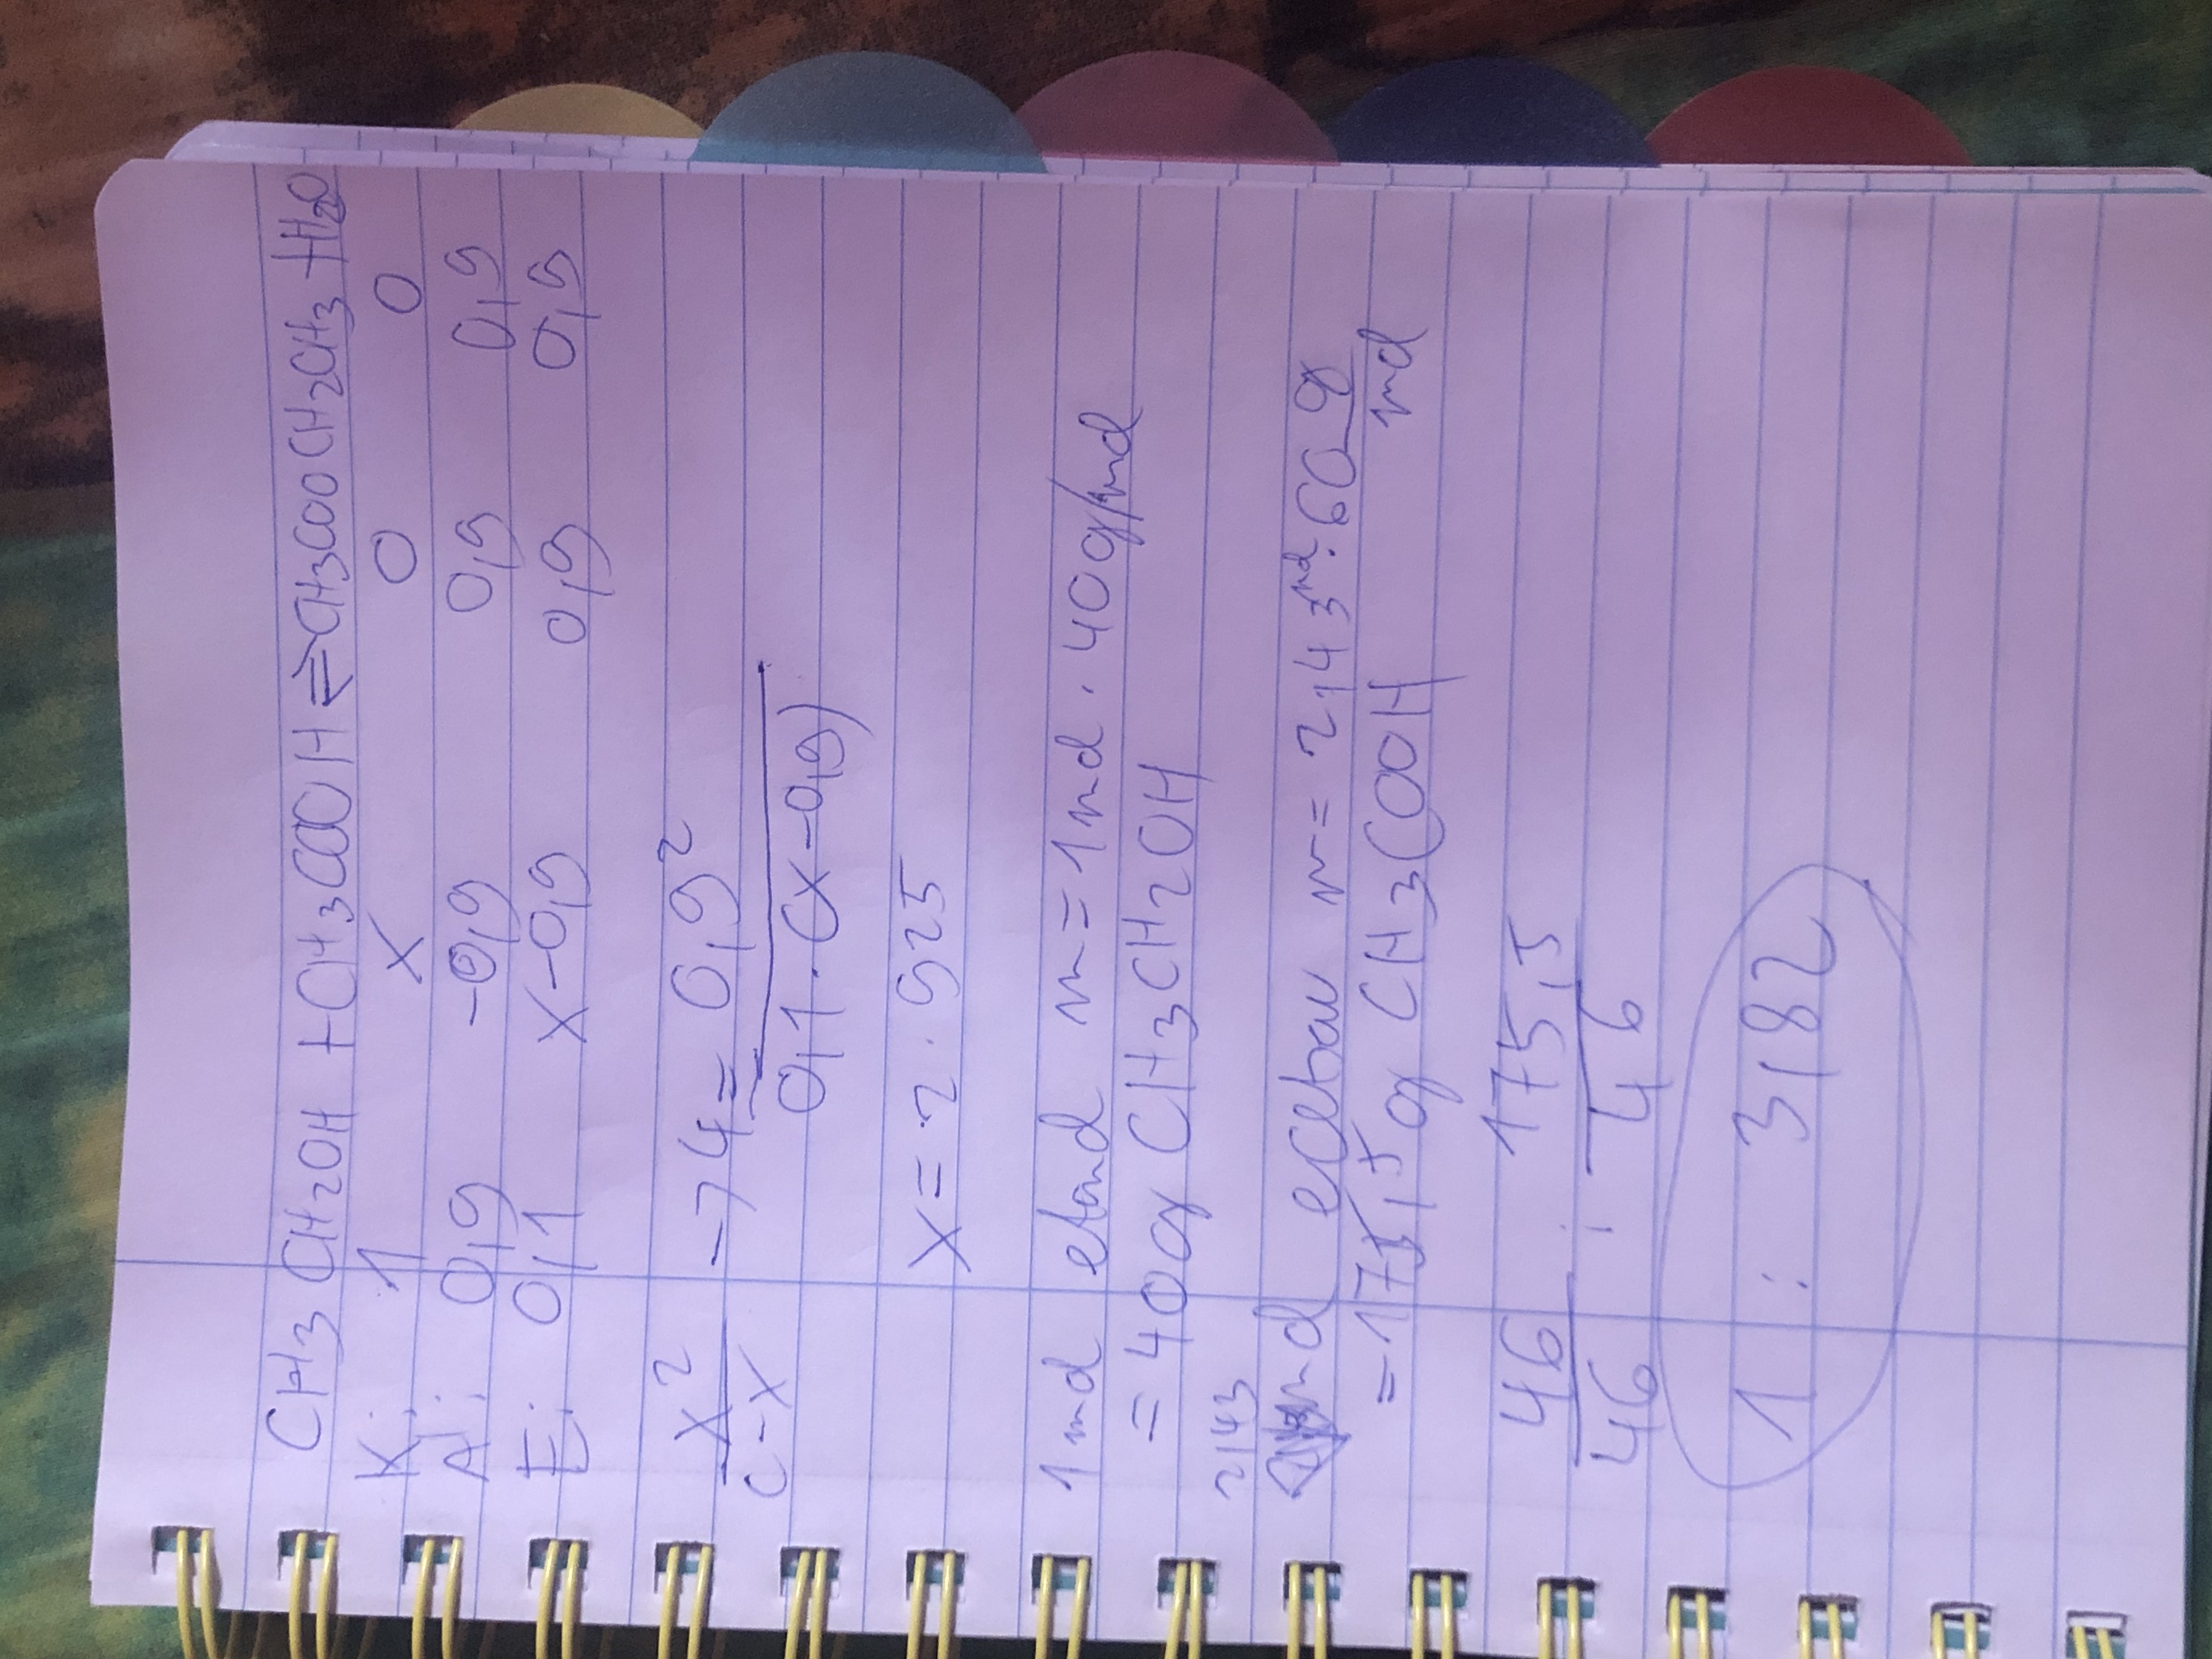 CH3 CH2OH + CH3COOH ⇌ CH3COOCH2CH3 + H2O
K: 1 x 0 0
Á: 0,9 -0,9 0,9 0,9
E: 0,1 x-0,9 0,9 0,9
x²/c-x → 4 = 0,9²/0,1·(x-0,9)
x = 2.925
1 mol etanol m = 1 mol · 40g/mol
= 40g CH3CH2OH
2,43
mol ecetsav m = 2,43 mol · 60 g/mol
= 175,5 g CH3COOH
46/46 : 175,5/46
1 : 3,82